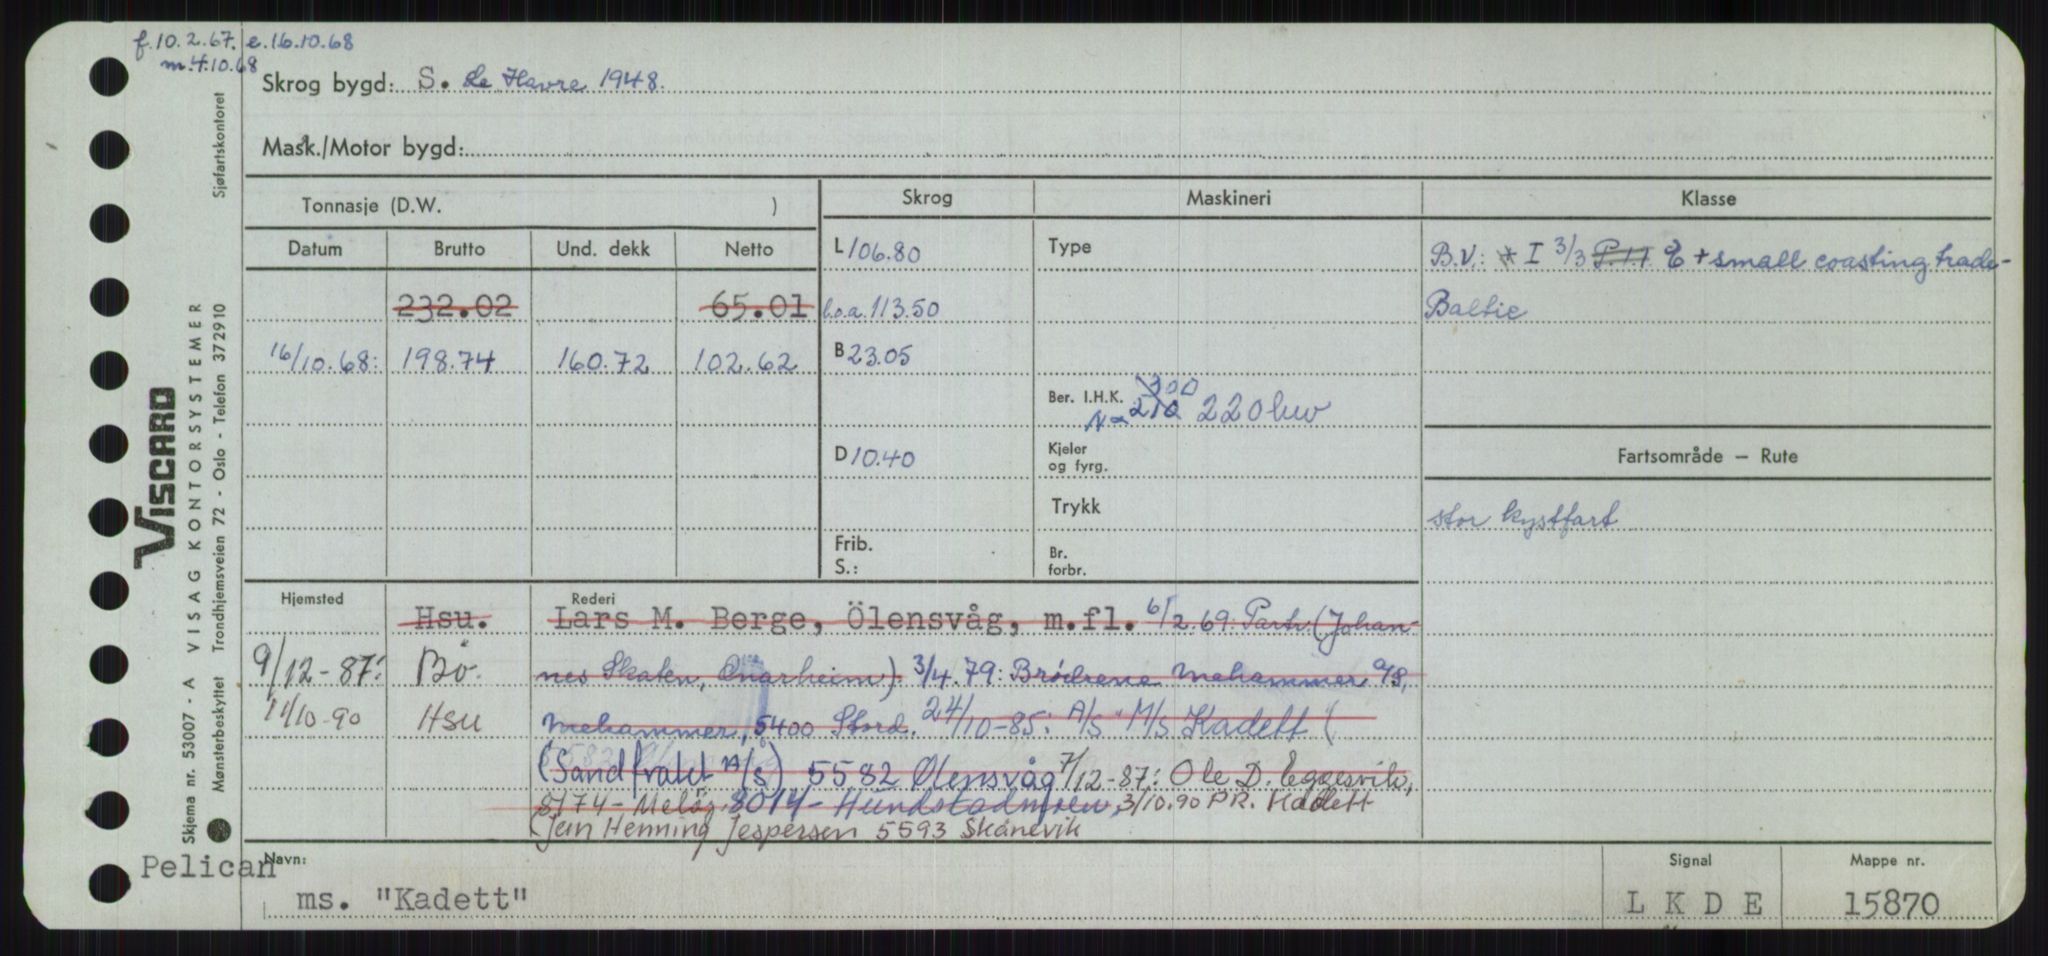 f. 10.2.67. e. 16.10.68
m. 4.10.68
Skrog bygd: S. Le Havre 1948.
Mask./Motor bygd:
Tonnasje (D.W. )
Skrog
Maskineri
Klasse
Datum Brutto Und. dekk Netto
L 106.80
Type
B.V.: * I 3/3 P.1.1 E + small coasting trade-
232.02 65.01
l.o.a. 113.50
Baltic
16/10.68: 198.74 160.72 102.62
B 23.05
Ber. I.H.K. 300
210 220 hw
D 10.40
Kjeler
og fyrg.
Fartsområde — Rute
Trykk
stor kystfart
Frib.
S.:
Br.
forbr.
Hjemsted
Rederi
Hsu. Lars M. Berge, Ölensvåg, m.fl. 6/2.69: Partr. (Johan-
9/12-87: Bø. nes Skaten, Onarheim). 3/4.79: Brødrene Mehammer A/S,
11/10-90 Hsu Mehammer, 5400 Stord. 24/10-85: A/S M/S Kadett (
(Sandfrakt A/S) 5582 Ølensvåg 7/12-87: Ole D. Eggesvik,
8174 - Meløy. 8014 - Hundstadmyren, 3/10.90 P.R. Kadett
(Jan Henning Jespersen 5593 Skånevik
Navn:
Pelican
ms. "Kadett"
Signal
L K D E
Mappe nr.
15870
VISCARD
Skjema nr. 53007 - A VISAG KONTORSYSTEMER
Mønsterbeskyttet Trondhjemsveien 72 - Oslo - Telefon 372910
Sjøfartskontoret